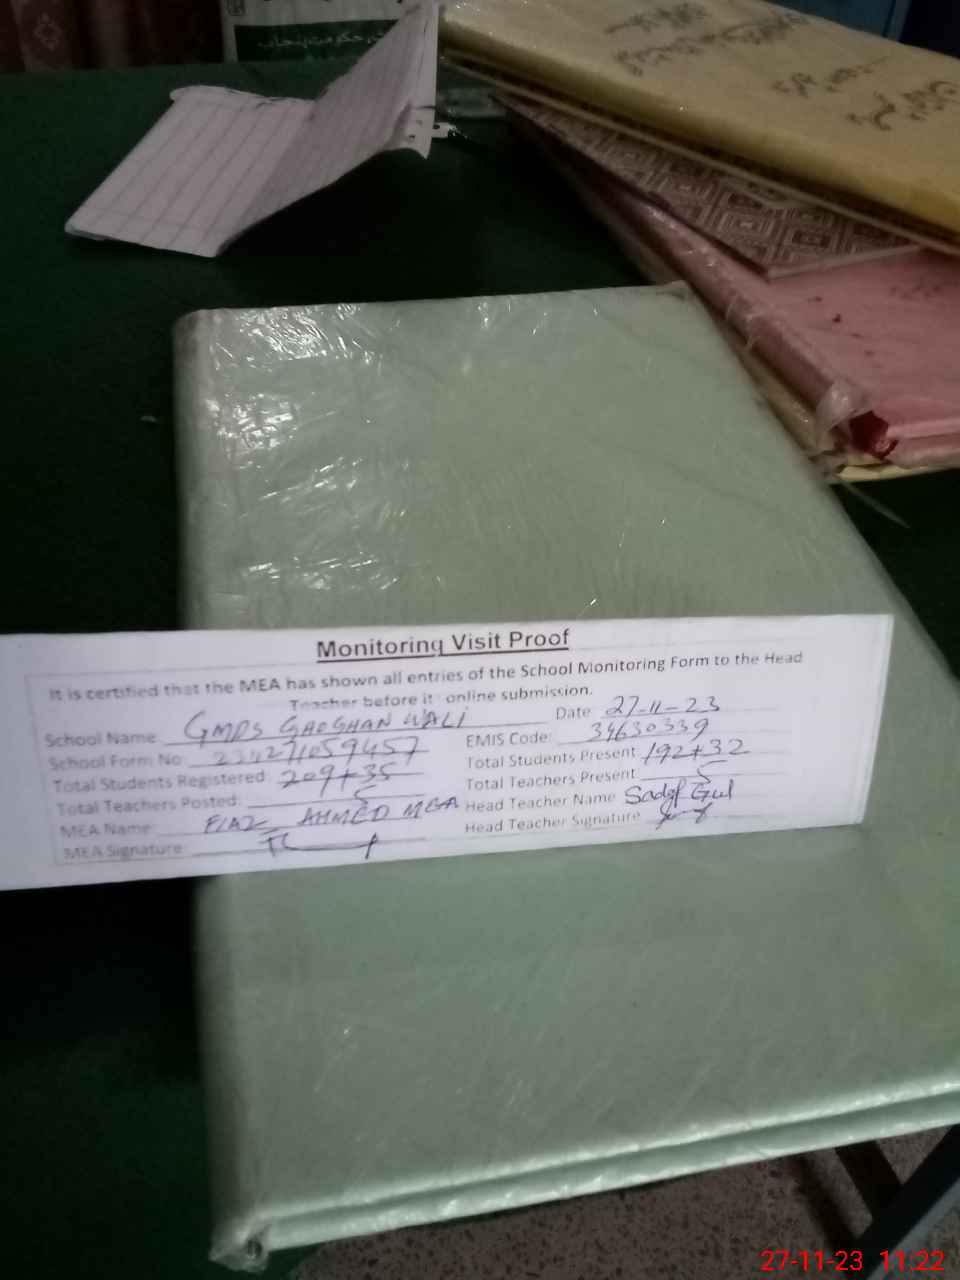 حکومت پنجاب
Monitoring Visit Proof
It is certified that the MEA has shown all entries of the School Monitoring Form to the Head
Teacher before it online submission.
School Name: GMPS GHOGHAN WALI Date: 27-11-23
School Form No: 234271059457 EMIS Code: 34630339
Total Students Registered: 209+35 Total Students Present: 192+32
Total Teachers Posted: 5 Total Teachers Present 5
MEA Name: FIAZ AHMED MEA Head Teacher Name Sadaf Gul
MEA Signature: Head Teacher Signature
27-11-23 11:22